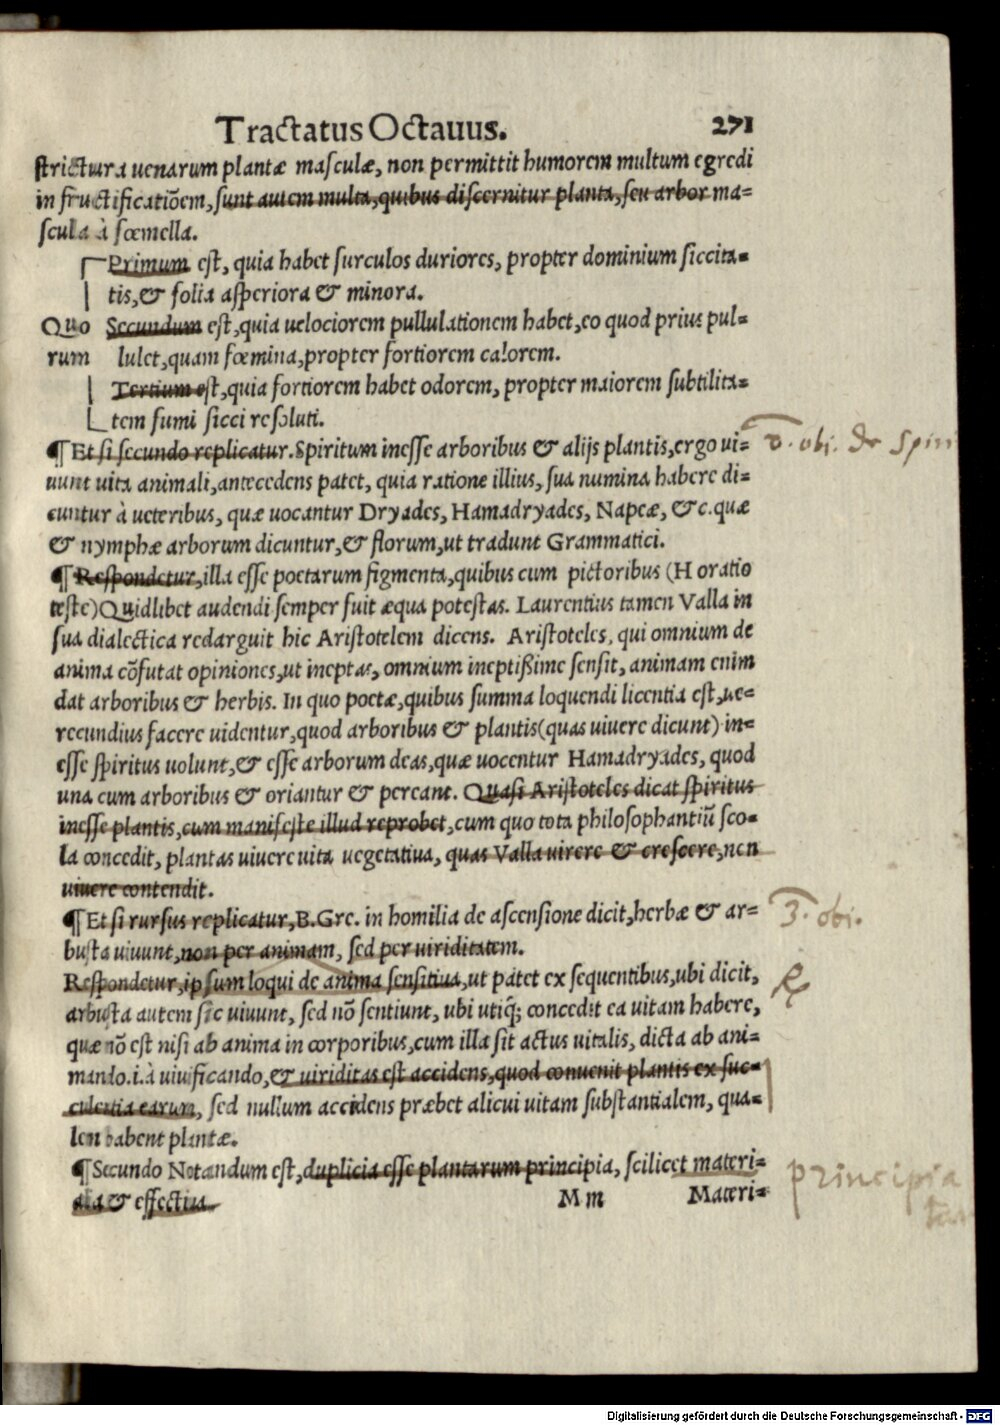 Tractatus Octauus. 271
strictura uenarum plantæ masculæ, non permittit humorem multum egredi
in fructificatiõem, sunt autem multa, quibus discernitur planta, seu arbor ma=
scula à fœmella.
Primum est, quia habet surculos duriores, propter dominium siccita=
tis, & folia asperiora & minora.
Quo Secundum est, quia uelociorem pullulationem habet, eo quod prius pul=
rum lulet, quam fœmina, propter fortiorem calorem.
Tertium est, quia fortiorem habet odorem, propter maiorem subtilita=
tem fumi sicci resoluti.
¶ Et si secundo replicatur. Spiritum inesse arboribus & alijs plantis, ergo ui= obi. de Spiri
uunt uita animali, antecedens patet, quia ratione illius, sua numina habere di=
cuntur à ueteribus, quæ uocantur Dryades, Hamadryades, Napeæ, &c. quæ
& nymphæ arborum dicuntur, & florum, ut tradunt Grammatici.
¶ Respondetur, illa esse poetarum figmenta, quibus cum pictoribus (Horatio
teste) Quidlibet audendi semper fuit æqua potestas. Laurentius tamen Valla in
sua dialectica redarguit hic Aristotelem dicens. Aristoteles, qui omnium de
anima cõfutat opiniones, ut ineptas, omnium ineptißime sensit, animam enim
dat arboribus & herbis. In quo poetæ, quibus summa loquendi licentia est, ue=
recundius facere uidentur, quod arboribus & plantis (quas uiuere dicunt) in=
esse spiritus uolunt, & esse arborum deas, quæ uocentur Hamadryades, quod
una cum arboribus & oriantur & pereant. Quasi Aristoteles dicat spiritus
inesse plantis, cum manifeste illud reprobet, cum quo tota philosophantiũ sco=
la concedit, plantas uiuere uita uegetatiua, quas Valla uirere & crescere, non
uiuere contendit.
¶ Et si rursus replicatur, B. Gre. in homilia de ascensione dicit, herbæ & ar= 3. obi.
busta uiuunt, non per animam, sed per uiriditatem.
Respondetur, ipsum loqui de anima sensitiua, ut patet ex sequentibus, ubi dicit,
arbusta autem sic uiuunt, sed nõ sentiunt, ubi utiq; concedit ea uitam habere,
quæ nõ est nisi ab anima in corporibus, cum illa sit actus uitalis, dicta ab ani=
mando. i. à uiuificando, & uiriditas est accidens, quod conuenit plantis ex suc=
culentia earum, sed nullum accidens præbet alicui uitam substantialem, qua=
lem habent plantæ.
¶ Secundo Notandum est, duplicia esse plantarum principia, scilicet materi= principia
alia & effectiua. Mm Materi=
Digitalisierung gefördert durch die Deutsche Forschungsgemeinschaft - DFG